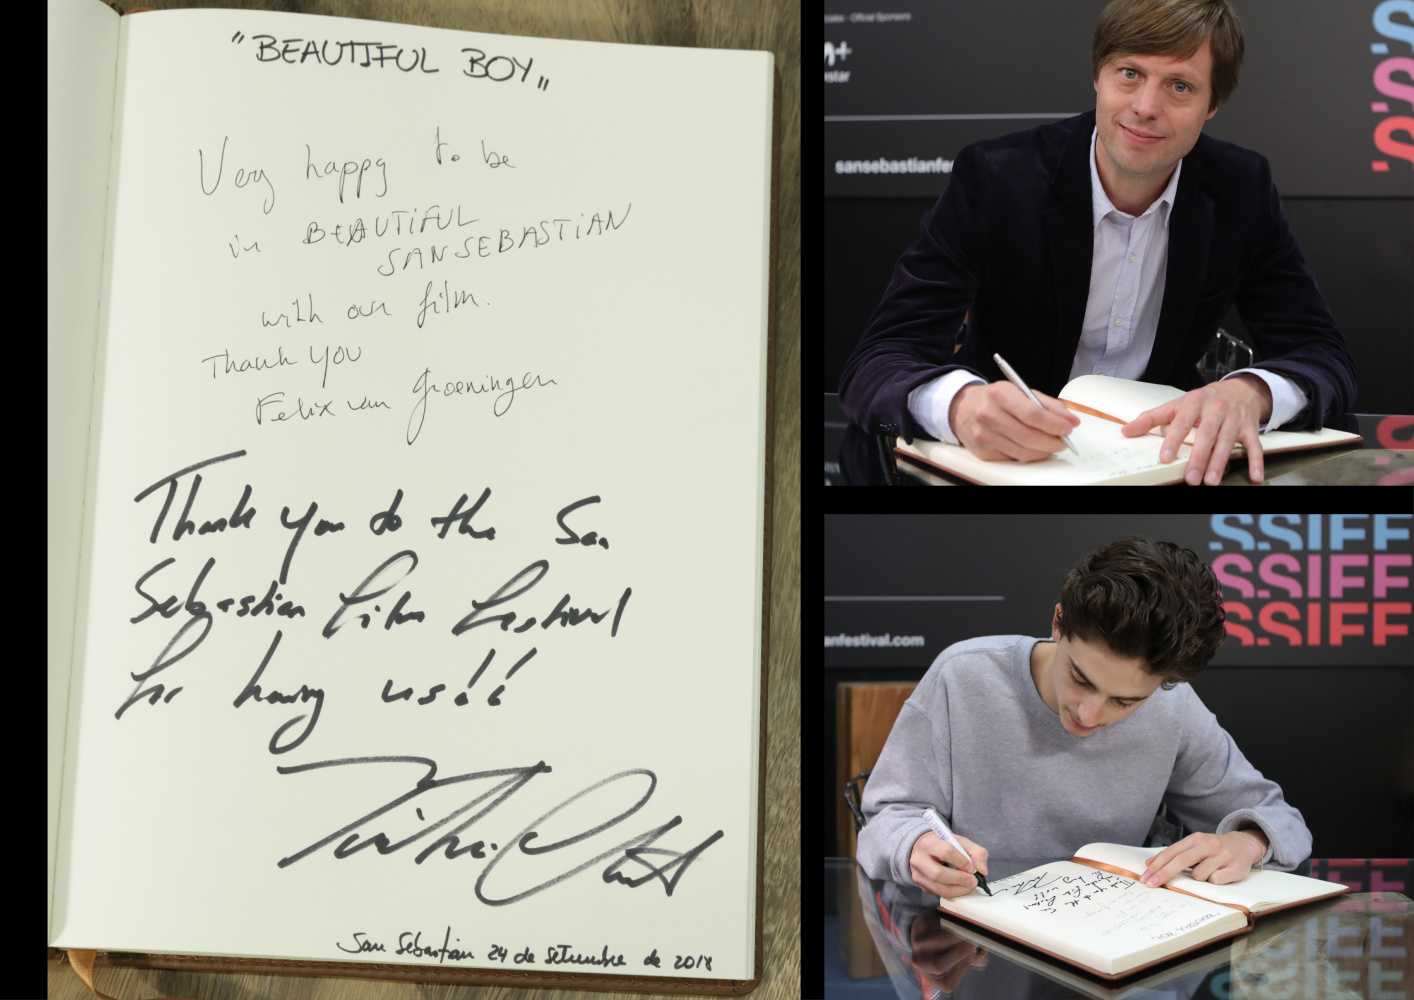 "BEAUTIFUL BOY"
Very happy to be
in BEAUTIFUL
SAN SEBASTIAN
with our film.
Thank you
Felix van Groeningen
Thank you to the San
Sebastian Film Festival
for having us!!
San Sebastian 24 de setiembre de 2018
Official Sponsors
M+
sansebastianfes
SSIFF
SSIFF
SSIFF
anfestival.com